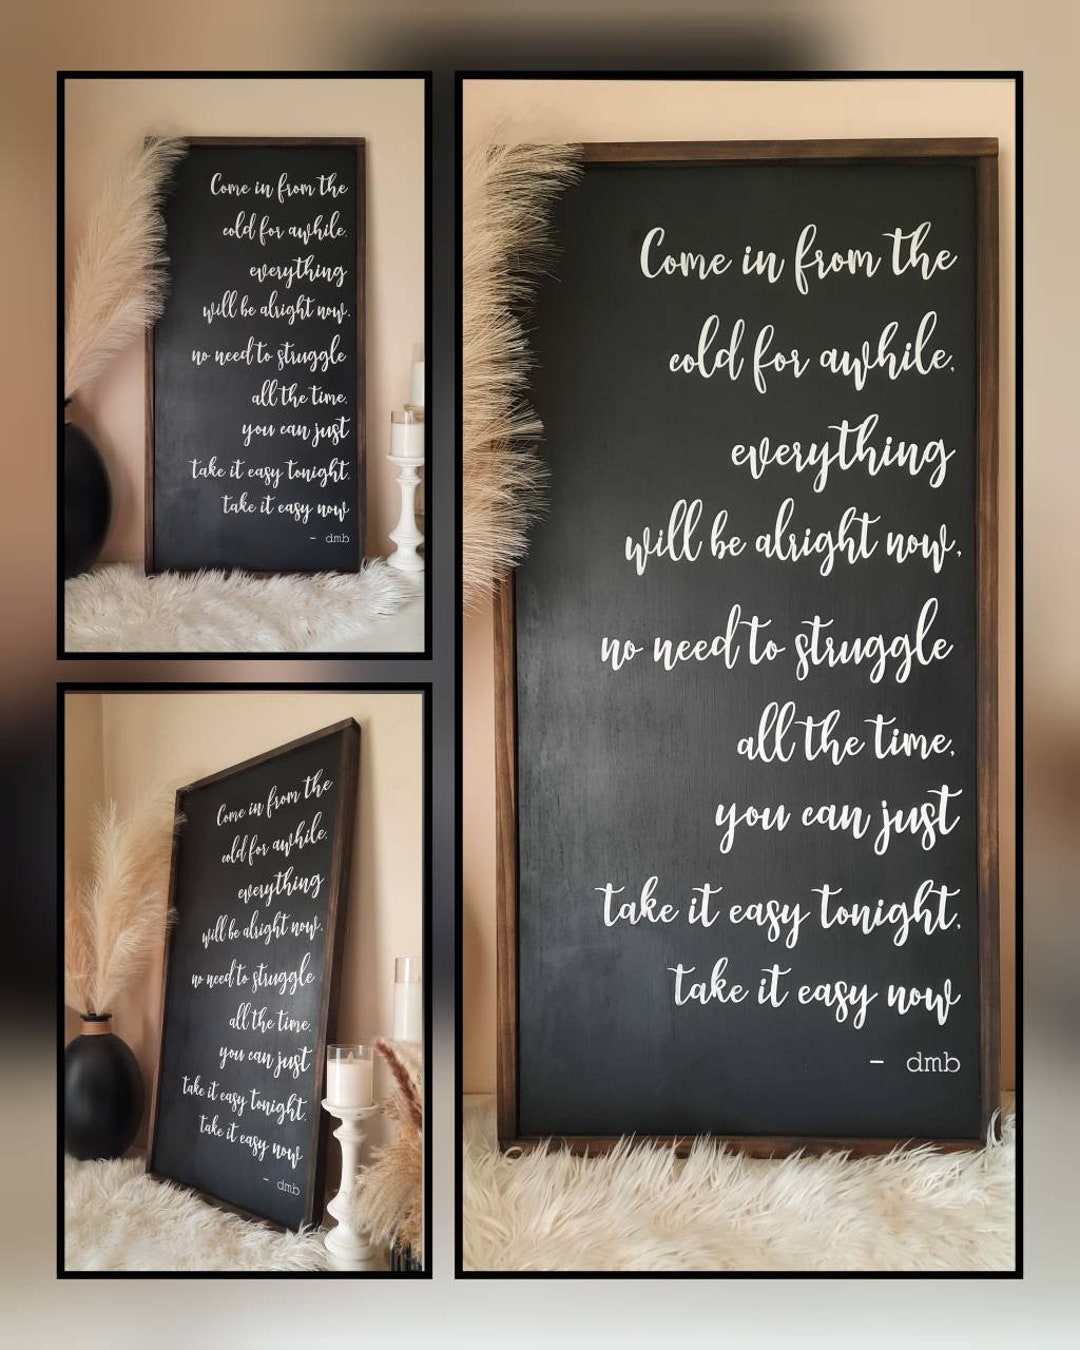 Come in from the
cold for awhile.
everything
will be alright now.
no need to struggle
all the time.
you can just
take it easy tonight.
take it easy now
- dmb
Come in from the
cold for awhile.
everything
will be alright now.
no need to struggle
all the time.
you can just
take it easy tonight.
take it easy now
- dmb
Come in from the
cold for awhile.
everything
will be alright now.
no need to struggle
all the time.
you can just
take it easy tonight.
take it easy now
- dmb